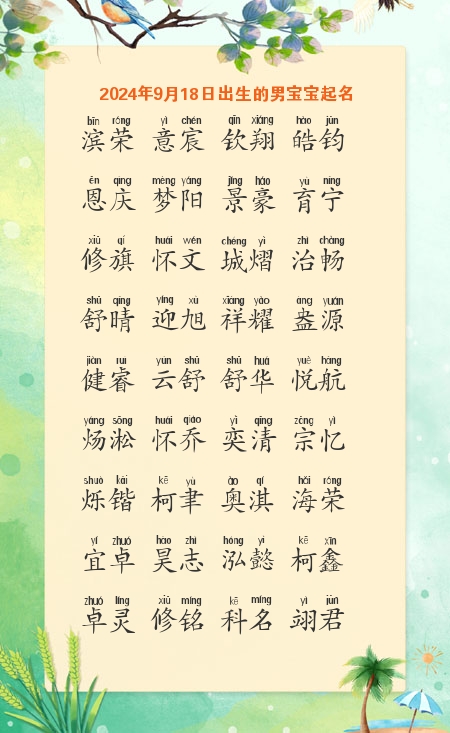 2024年9月18日出生的男宝宝起名
bīn róng yì chén qīn xiáng hào jūn
滨荣 意宸 钦翔 皓钧
ēn qìng mèng yáng jǐng háo yù níng
恩庆 梦阳 景豪 育宁
xiū qí huái wén chéng yì zhì chàng
修旗 怀文 城熠 治畅
shū qíng yíng xù xiáng yào àng yuán
舒晴 迎旭 祥耀 盎源
jiàn ruì yún shū shū huá yuè háng
健睿 云舒 舒华 悦航
yáng sōng huái qiáo yì qīng zōng yì
炀淞 怀乔 奕清 宗忆
shuò kǎi kē yù ào qí hǎi róng
烁锴 柯聿 奥淇 海荣
yí zhuó hào zhì hóng yì kē xīn
宜卓 昊志 泓懿 柯鑫
zhuó líng xiū míng kē míng yì jūn
卓灵 修铭 科名 翊君